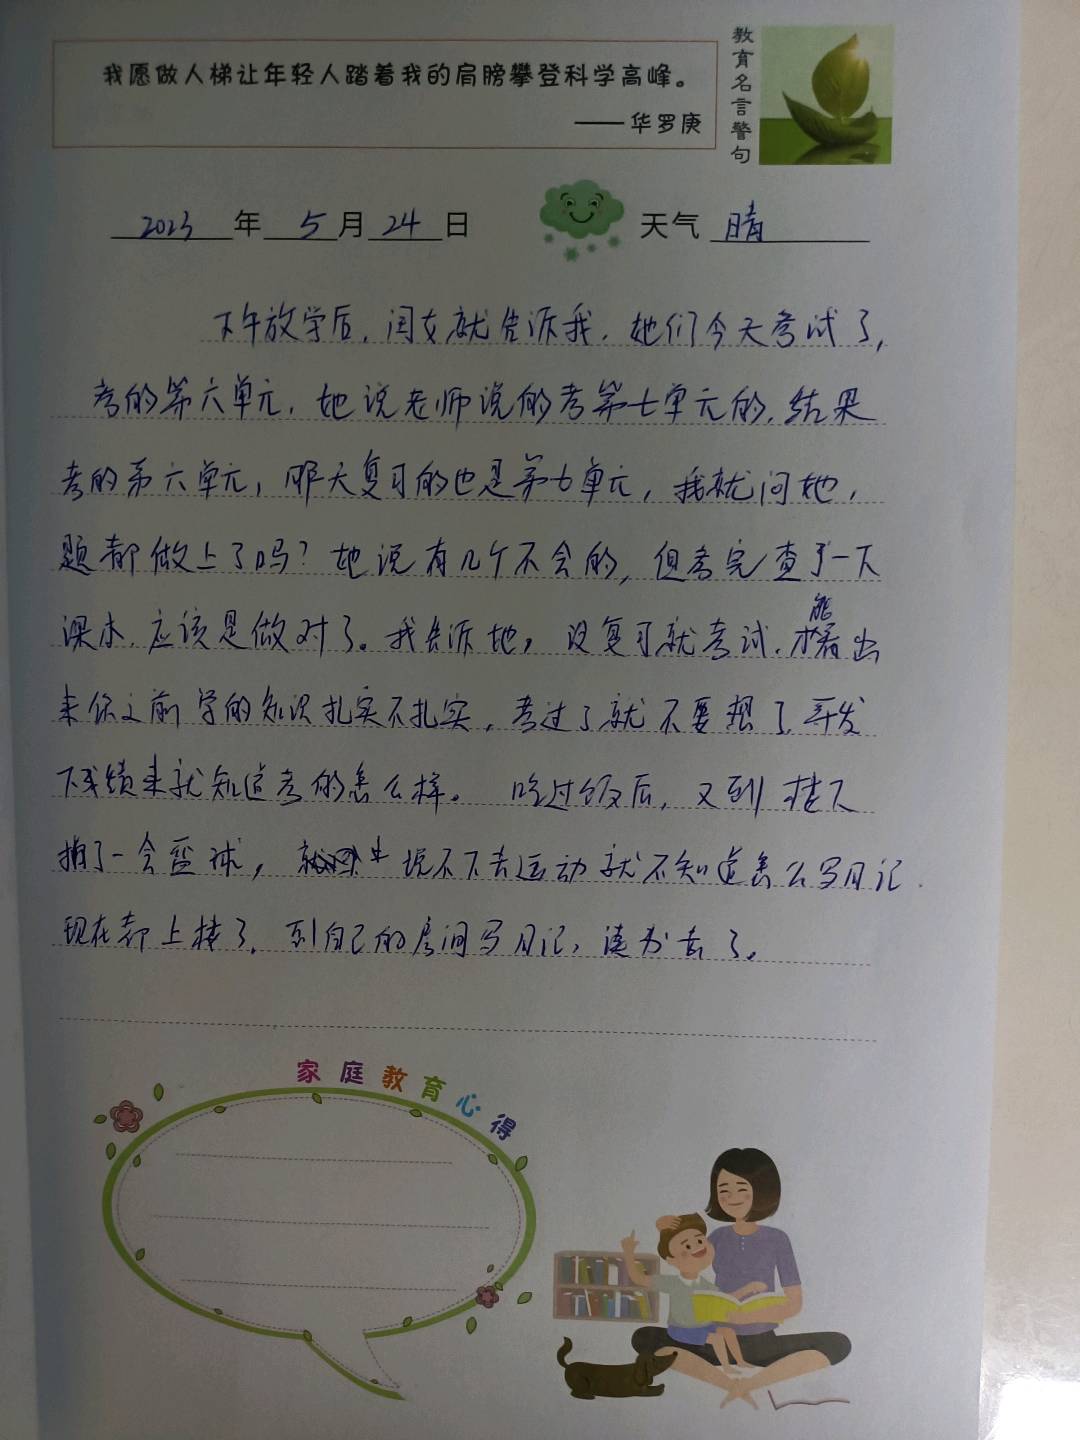 我愿做人梯让年轻人踏着我的肩膀攀登科学高峰。
——华罗庚
教育名言警句
2023年 5月24日 天气 晴
下午放学后,闺女就告诉我,她们今天考试了,
考的第六单元,她说老师说的考第七单元的,结果
考的第六单元,昨天复习的也是第七单元,我就问她,
题都做上了吗?她说有几个不会的,但考完查了一下
课本,应该是做对了。我告诉她,没复习就考试,才能看出
来你之前学的知识扎实不扎实,考过了就不要想了,等发
下成绩来就知道考的怎么样。 吃过饭后,又到楼下
拍了一会蓝球, 说不下去运动就不知道怎么写日记
现在都上楼了,到自己的房间写日记,读书去了。
家庭教育心得